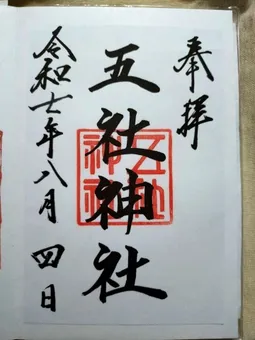 奉拝
五社神社
令和七年八月四日
五社神社